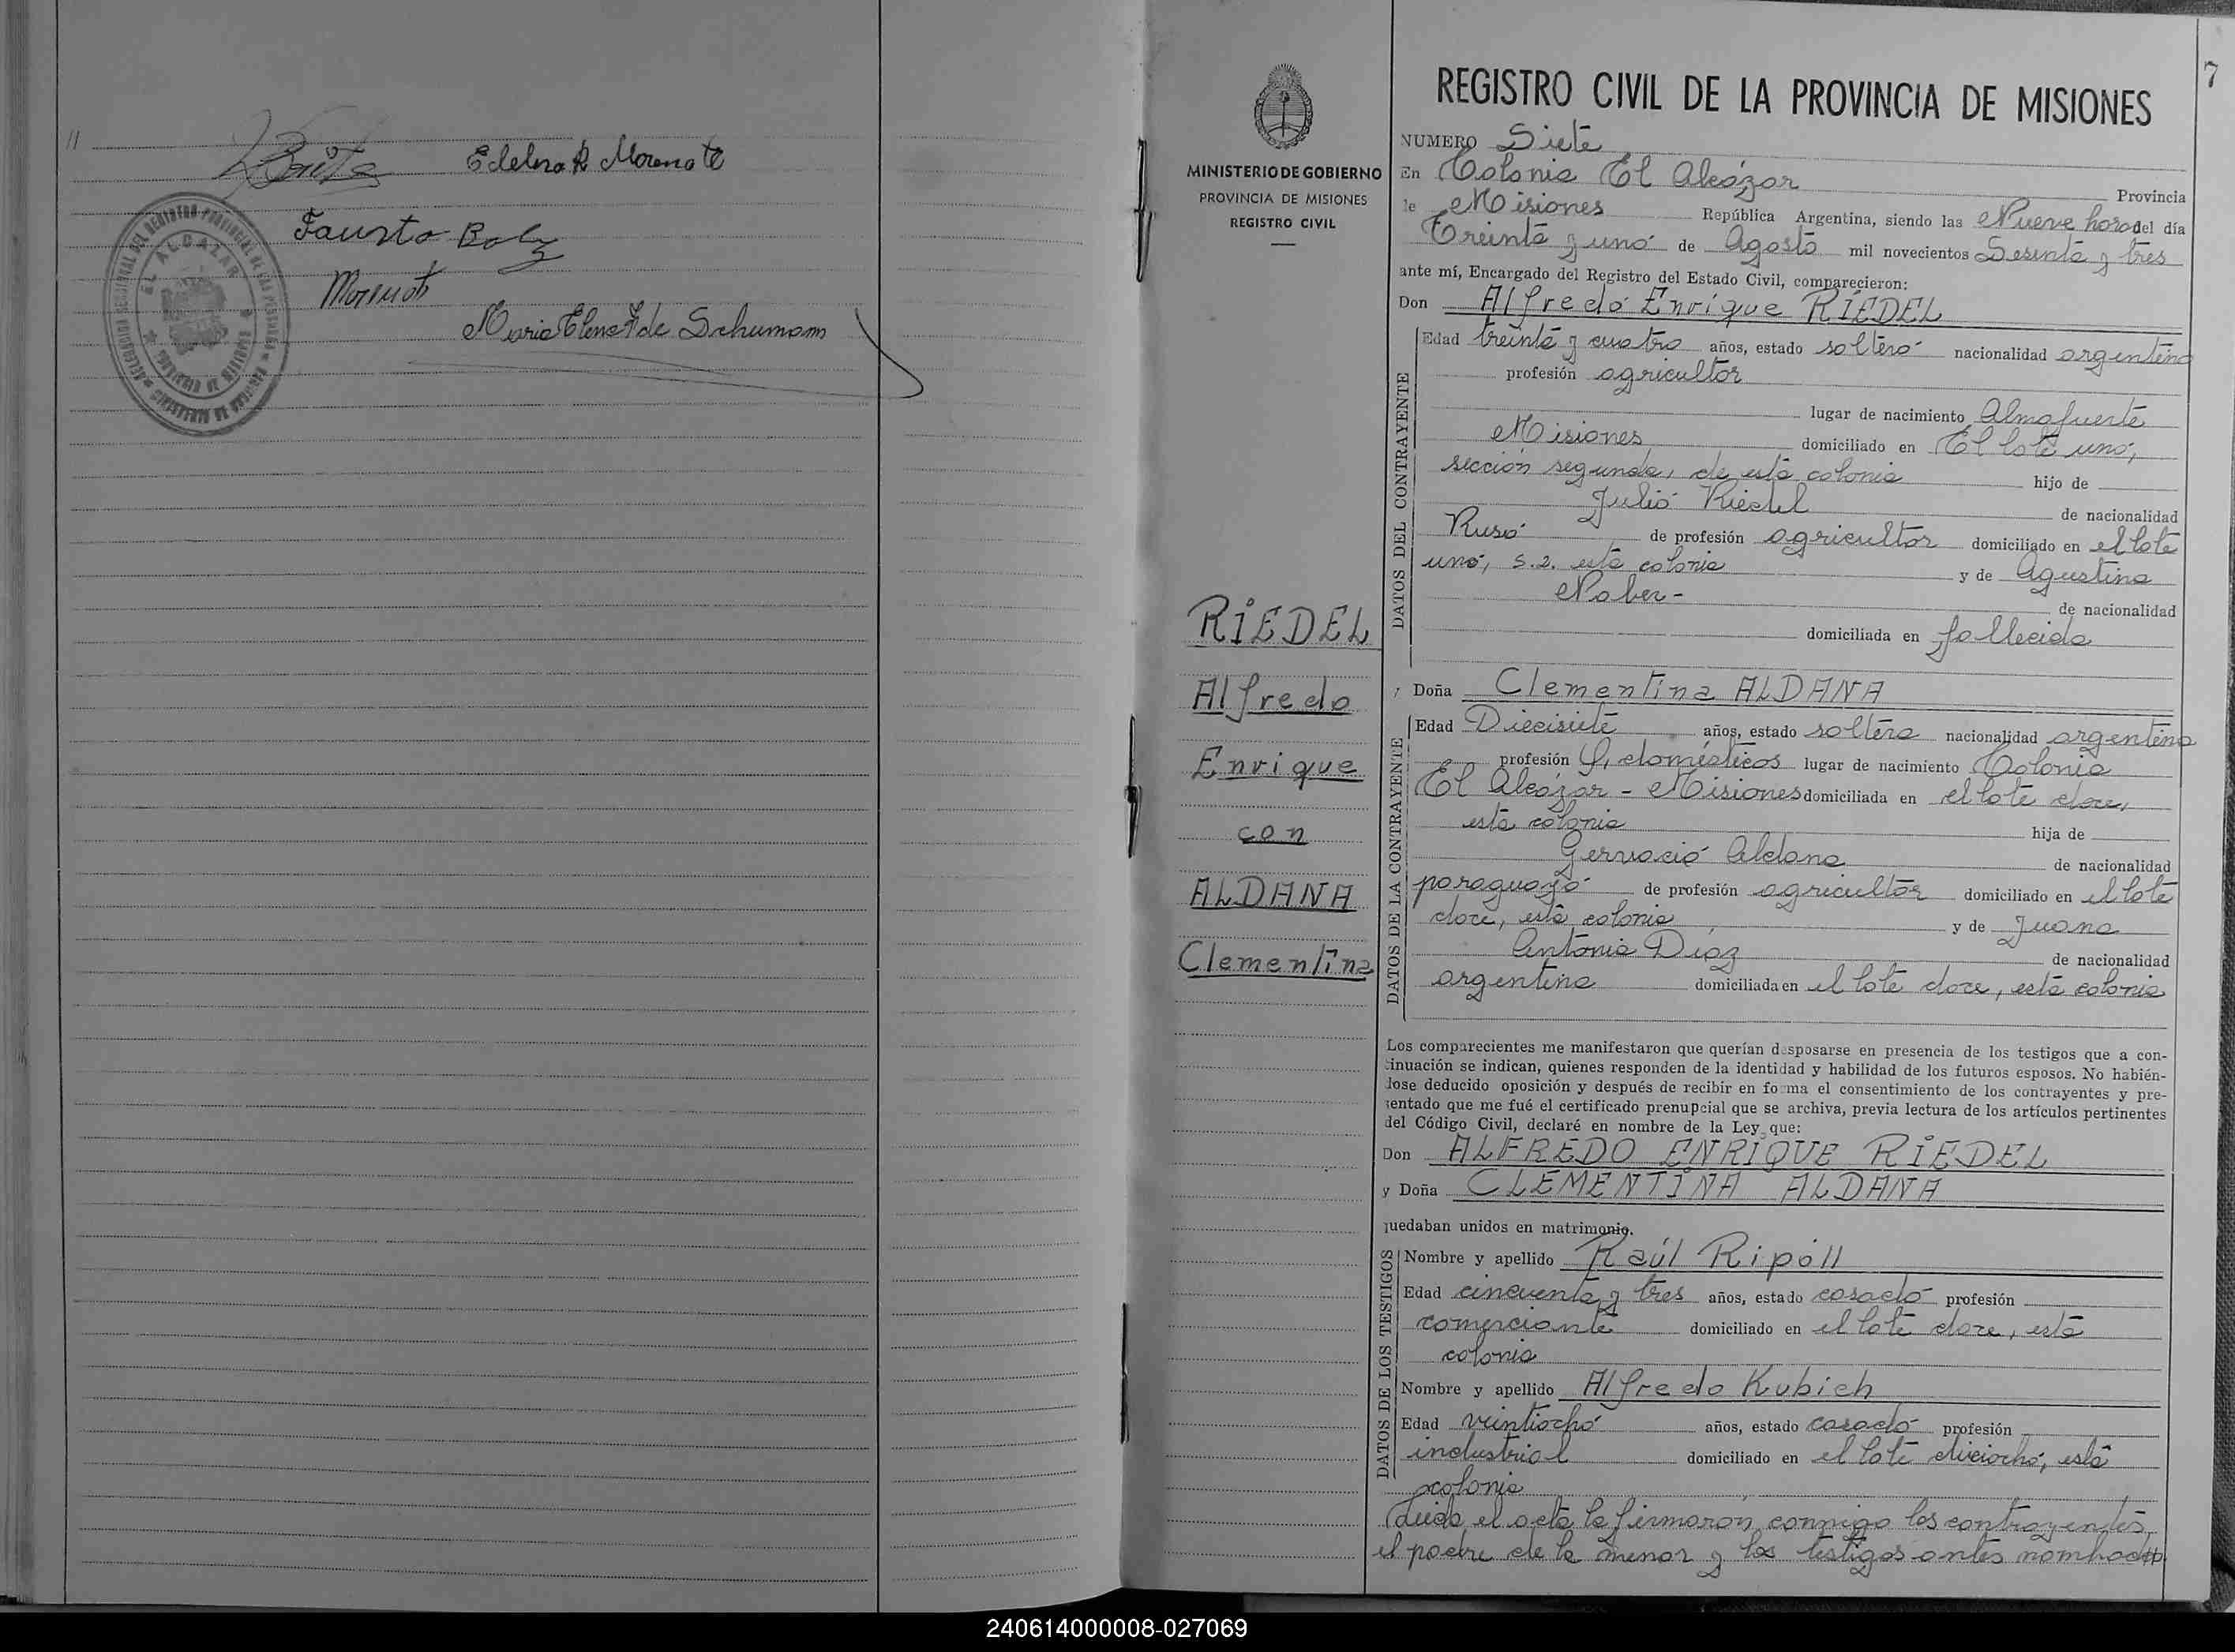 //
Edelina R Morenate
Fausto Baez
Maria Elena F de Schumann
EL ALCAZAR
7
MINISTERIO DE GOBIERNO
PROVINCIA DE MISIONES
REGISTRO CIVIL
RIEDEL
Alfredo
Enrique
con
ALDANA
Clementina
REGISTRO CIVIL DE LA PROVINCIA DE MISIONES
NUMERO Siete
En Colonia El Alcázar Provincia
de Misiones República Argentina, siendo las Nueve horas del día
Treinta y uno de Agosto mil novecientos Sesenta y tres
ante mí, Encargado del Registro del Estado Civil, comparecieron:
Don Alfredo Enrique RIEDEL
DATOS DEL CONTRAYENTE
Edad treinta y cuatro años, estado soltero nacionalidad argentina
profesión agricultor
lugar de nacimiento Almafuerte
Misiones domiciliado en El lote uno,
sección segunda, de esta colonia hijo de
Julio Riedel de nacionalidad
Ruso de profesión agricultor domiciliado en el lote
uno, s.2. esta colonia y de Agustina
Naber - de nacionalidad
domiciliada en fallecida
y Doña Clementina ALDANA
DATOS DE LA CONTRAYENTE
Edad Diecisiete años, estado soltera nacionalidad argentina
profesión Q. domésticos lugar de nacimiento Colonia
El Alcázar - Misiones domiciliada en el lote doce,
esta colonia hija de
Gervacio Aldana de nacionalidad
paraguayo de profesión agricultor domiciliado en el lote
doce, esta colonia y de Juana
Antonia Diaz de nacionalidad
argentina domiciliada en el lote doce, esta colonia
Los comparecientes me manifestaron que querían desposarse en presencia de los testigos que a con-
tinuación se indican, quienes responden de la identidad y habilidad de los futuros esposos. No habién-
dose deducido oposición y después de recibir en forma el consentimiento de los contrayentes y pre-
sentado que me fué el certificado prenupcial que se archiva, previa lectura de los artículos pertinentes
del Código Civil, declaré en nombre de la Ley que:
Don ALFREDO ENRIQUE RIEDEL
y Doña CLEMENTINA ALDANA
quedaban unidos en matrimonio.
DATOS DE LOS TESTIGOS
Nombre y apellido Raúl Ripoll
Edad cincuenta y tres años, estado casado profesión
comerciante domiciliado en el lote doce, esta
colonia
Nombre y apellido Alfredo Kubich
Edad veintiocho años, estado casado profesión
industrial domiciliado en el lote dieciocho, esta
colonia
Leída el acta la firmaron conmigo los contrayentes,
el padre de la menor y los testigos antes nombrados
240614000008-027069